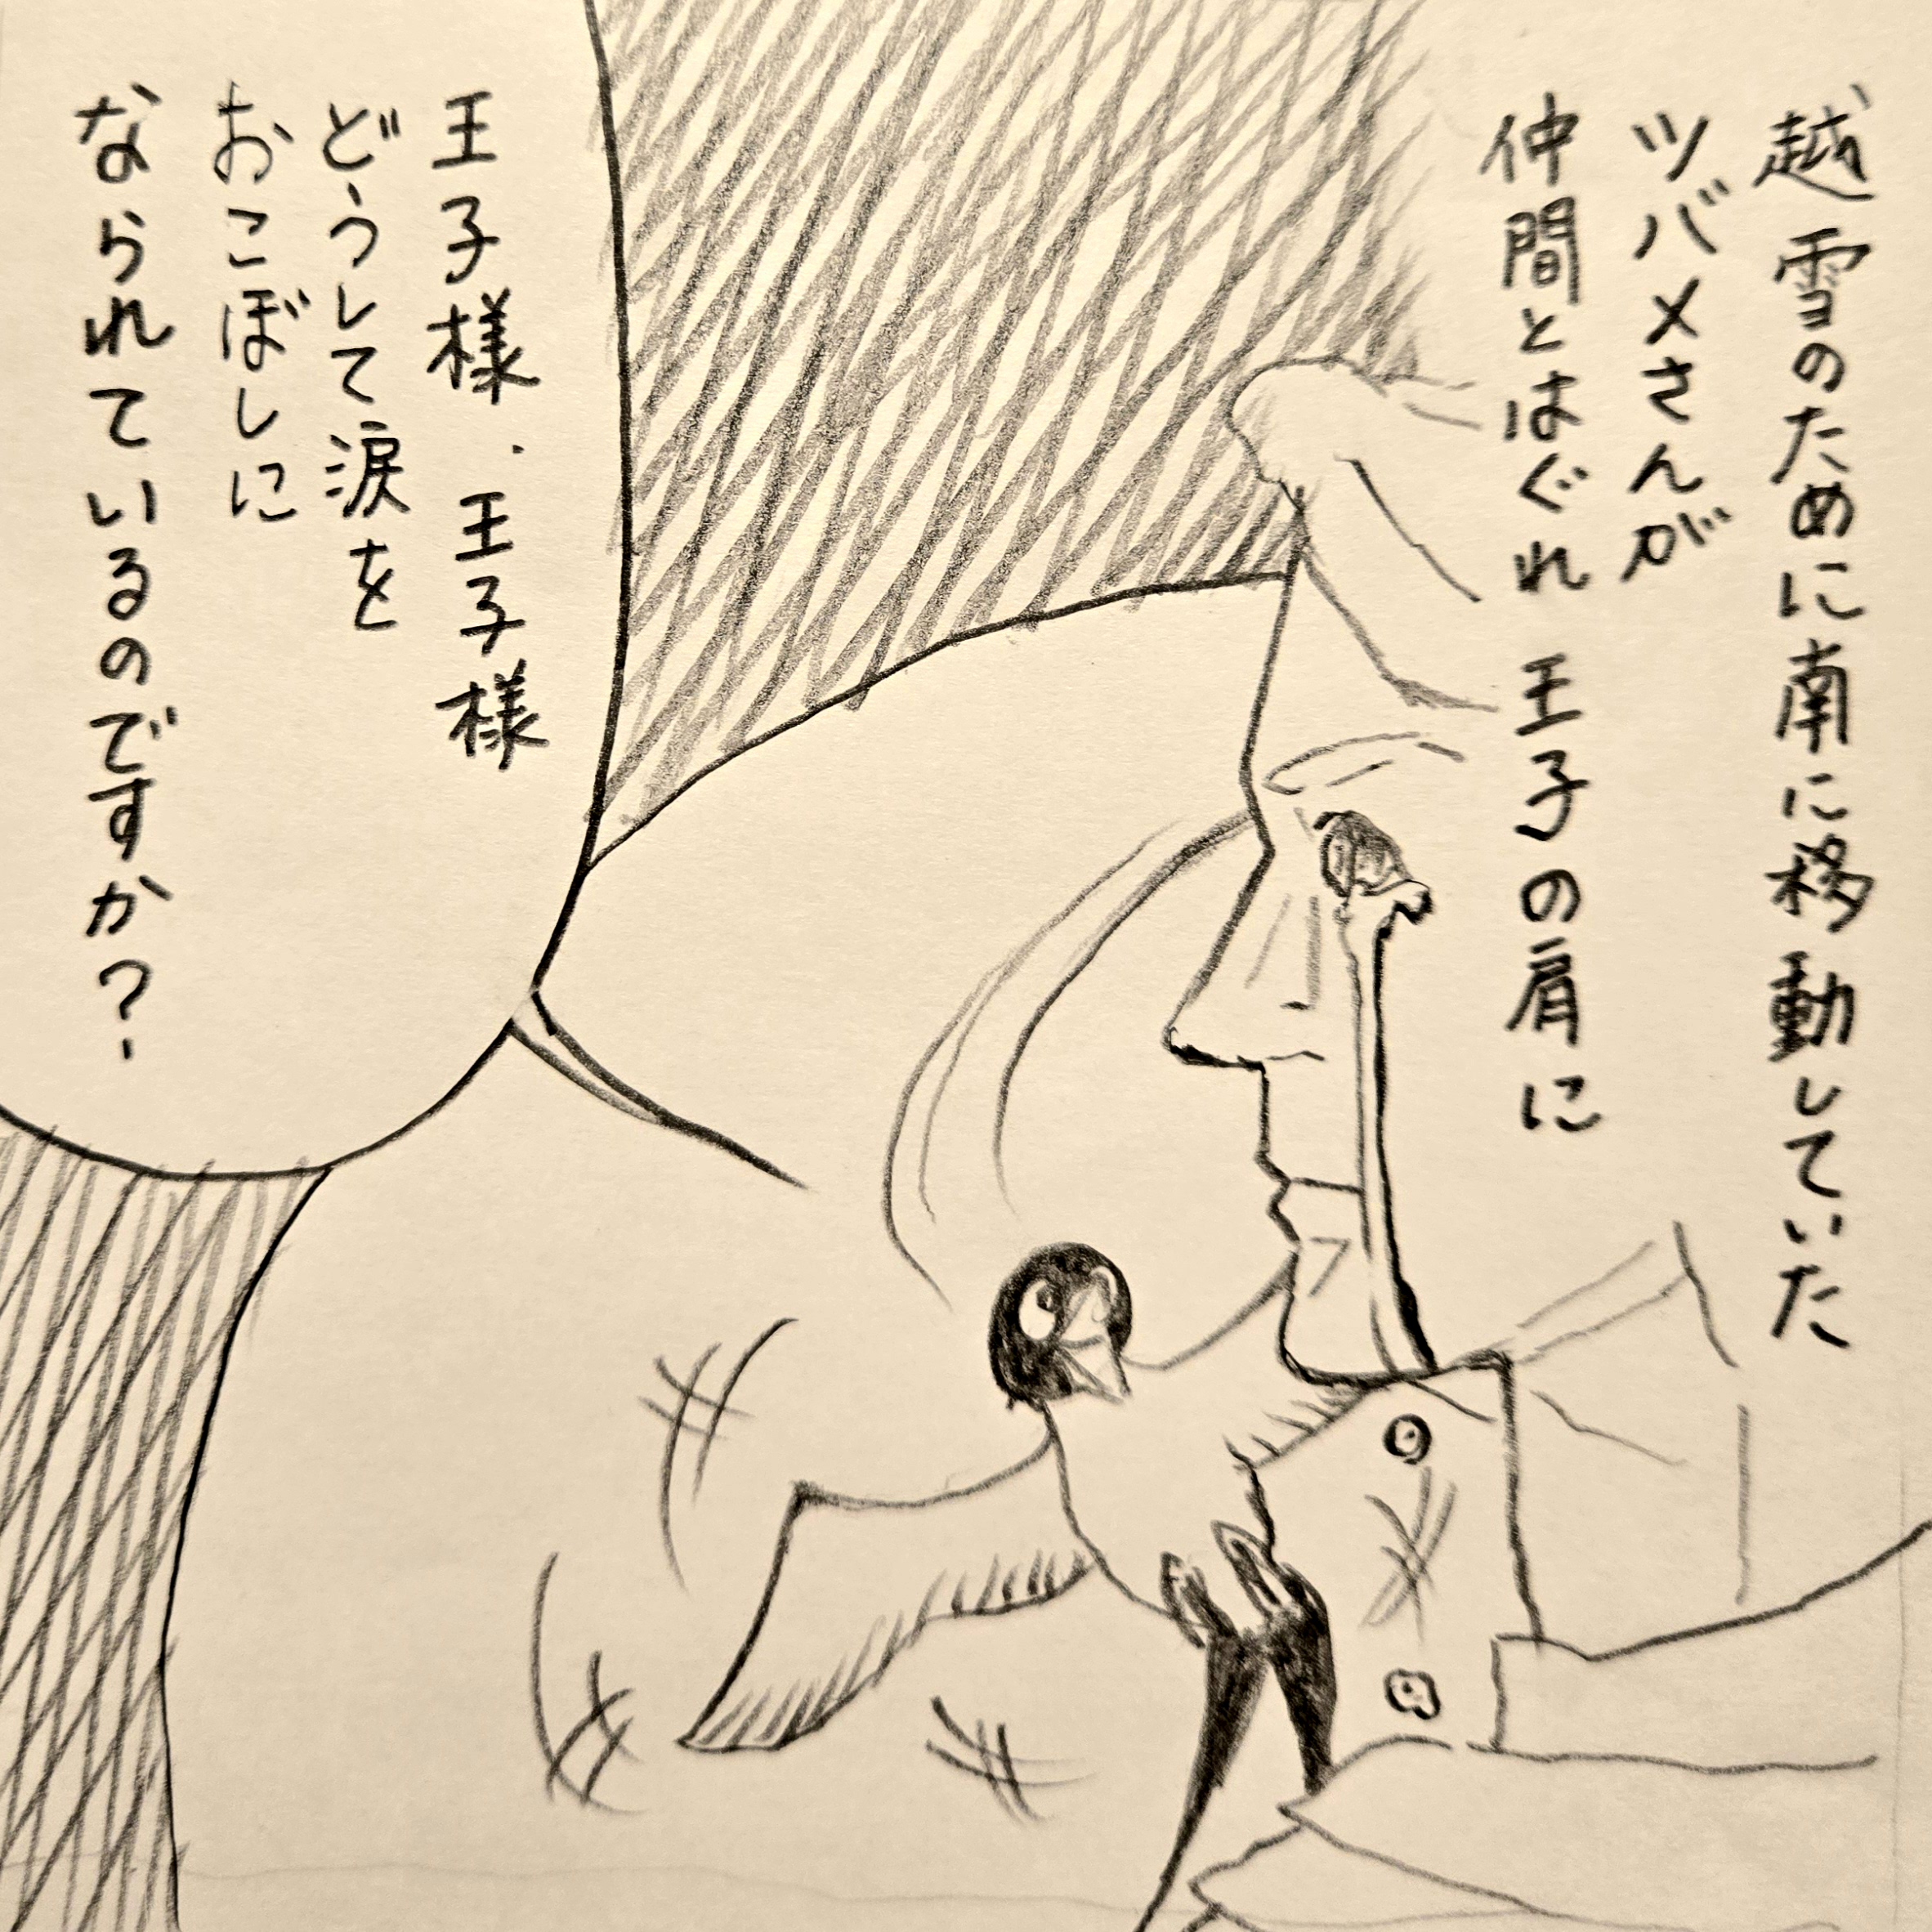 越雪のために南に移動していた
ツバメさんが
仲間とはぐれ 王子の肩に
王子様.王子様
どうして涙を
おこぼしに
なられているのですか?